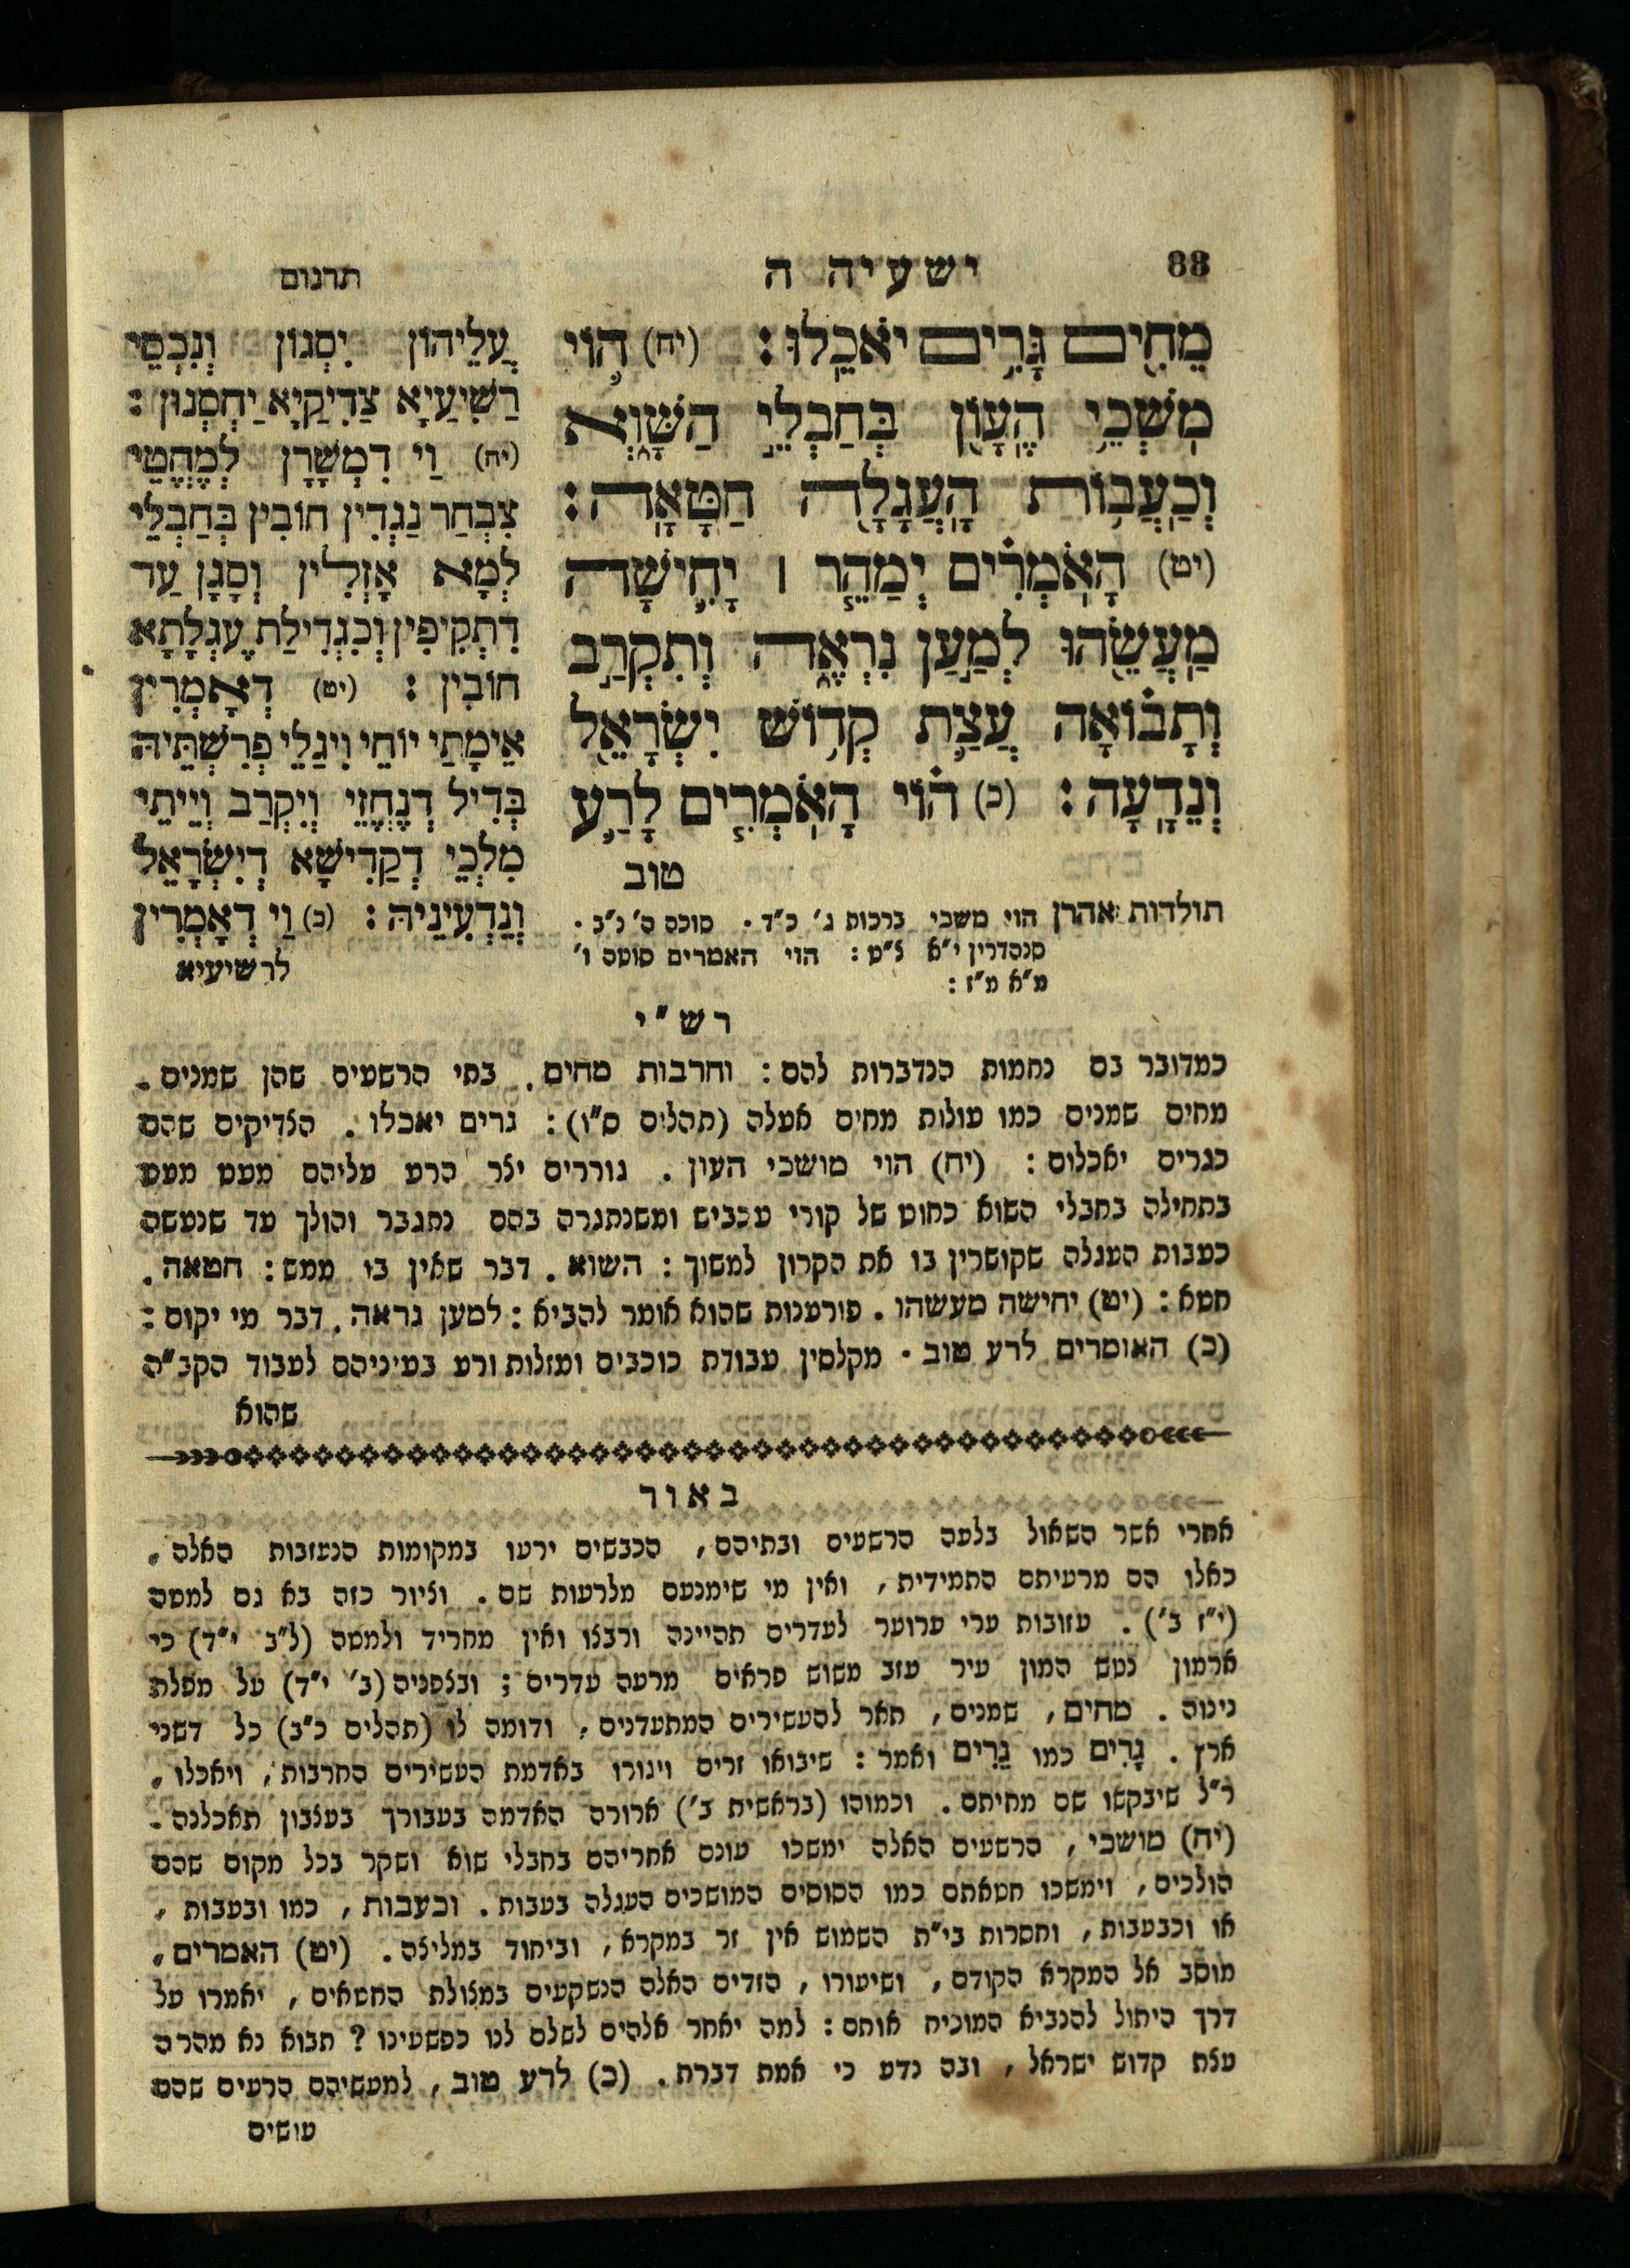 88
ישעיה ה
תרגום
מֵחִ֖ים גָּרִ֥ים יֹאכֵֽלוּ׃ (יח) ה֛וֹי
מֹשְׁכֵ֥י הֶעָוֺ֖ן בְּחַבְלֵ֣י הַשָּׁ֑וְא
וְכַעֲב֥וֹת הָעֲגָלָ֖ה חַטָּאָֽה׃
(יט) הָאֹמְרִ֗ים יְמַהֵ֧ר ׀ יָחִ֛ישָׁה
מַעֲשֵׂ֖הוּ לְמַ֣עַן נִרְאֶ֑ה וְתִקְרַ֣ב
וְתָב֗וֹאָה עֲצַ֛ת קְד֥וֹשׁ יִשְׂרָאֵ֖ל
וְנֵדָֽעָה׃ (כ) ה֣וֹי הָאֹמְרִ֥ים לָרַ֛ע
טוב
תולדות אהרן הוי משכי ברכות ג׳ כ״ד · סוכה ה׳ נ״ב ·
סנהדרין י״א צ״ט : הוי האמרים סוטה ו׳
מ״א מ״ז :
עֲלֵיהוֹן יִסְגוֹן וְנִכְסֵי
רַשִׁיעַיָא צַדִיקַיָא יַחְסְנוּן :
(יח) וַי דִמְשָׁרָן לְמֶחֱטֵי
צִבְחַר נַגְדִין חוֹבִין בְּחַבְלֵי
לְמָא אָזְלִין וְסָגָן עַד
דִתְקִיפִין וְכִגְדִילַת עֶגְלָתָא
חוֹבִין : (יט) דְאָמְרִין
אֵימָתַי יוֹחֵי וִיגַלֵי פְרִשְׁתֵּיהּ
בְּדִיל דְנֶחֱזֵי וְיִקְרַב וְיֵיתֵי
מִלְכֵי דְקַדִישָׁא דְיִשְׂרָאֵל
וְנֵדְעִינֵיהּ : (כ) וַי דְאָמְרִין
לרשיעיא
רש״י
כמדובר בם נחמות הנדברות להם : וחרבות מחים . בתי הרשעים שהן שמנים .
מחים שמנים כמו עולות מחים אעלה (תהלים ס״ו) : גרים יאכלו . הצדיקים שהם
כגרים יאכלום : (יח) הוי מושכי העון . גוררים יצר הרע עליהם מעט מעט
בתחילה בחבלי השוא כחוט של קורי עכביש ומשנתגרה בהם נתגבר והולך עד שנעשה
כעבות העגלה שקושרין בו את הקרון למשוך : השוא . דבר שאין בו ממש : חטאה .
חטא : (יט) יחישה מעשהו . פורענות שהוא אומר להביא : למען נראה . דבר מי יקום :
(כ) האומרים לרע טוב · מקלסין עבודת כוכבים ומזלות ורע בעיניהם לעבוד הקב״ה
שהוא
באור
אחרי אשר השאול בלעה הרשעים ובתיהם , הכבשים ירעו במקומות הנעזבות האלה ,
כאלו הם מרעיתם התמידית , ואין מי שימנעם מלרעות שם . וציור כזה בא גם למטה
(י״ז ב׳) . עזובות ערי ערוער לעדרים תהיינה ורבצו ואין מחריד ולמטה (ל״ב י״ד) כי
ארמון נטש המון עיר עזב משוש פראים מרעה עדרים ; ובצפניה (ב׳ י״ד) על מפלת
נינוה . מחים , שמנים , תאר להעשירים המתעדנים , ודומה לו (תהלים כ״ב) כל דשני
ארץ . גָרִים כמו גֵרִים ואמר : שיבואו זרים ויגורו באדמת העשירים החרבות , ויאכלו ,
ר״ל שיבקשו שם מחיתם . וכמוהו (בראשית ב׳) ארורה האדמה בעבורך בעצבון תאכלנה .
(יח) מושכי , הרשעים האלה ימשכו עונם אחריהם בחבלי שוא ושקר בכל מקום שהם
הולכים , וימשכו חטאתם כמו הסוסים המושכים העגלה בעבות . וכעבות , כמו ובעבות ,
או וכבעבות , וחסרות בי״ת השמוש אין זר במקרא , וביחוד במליצה . (יט) האמרים ,
מוסב אל המקרא הקודם , ושיעורו , הזדים האלה הנשקעים במצולת החטאים , יאמרו על
דרך היתול להנביא המוכיח אותם : למה יאחר אלהים לשלם לנו כפשעינו ? תבוא נא מהרה
עצת קדוש ישראל , ובה נדע כי אמת דברת . (כ) לרע טוב , למעשיהם הרעים שהם
עושים